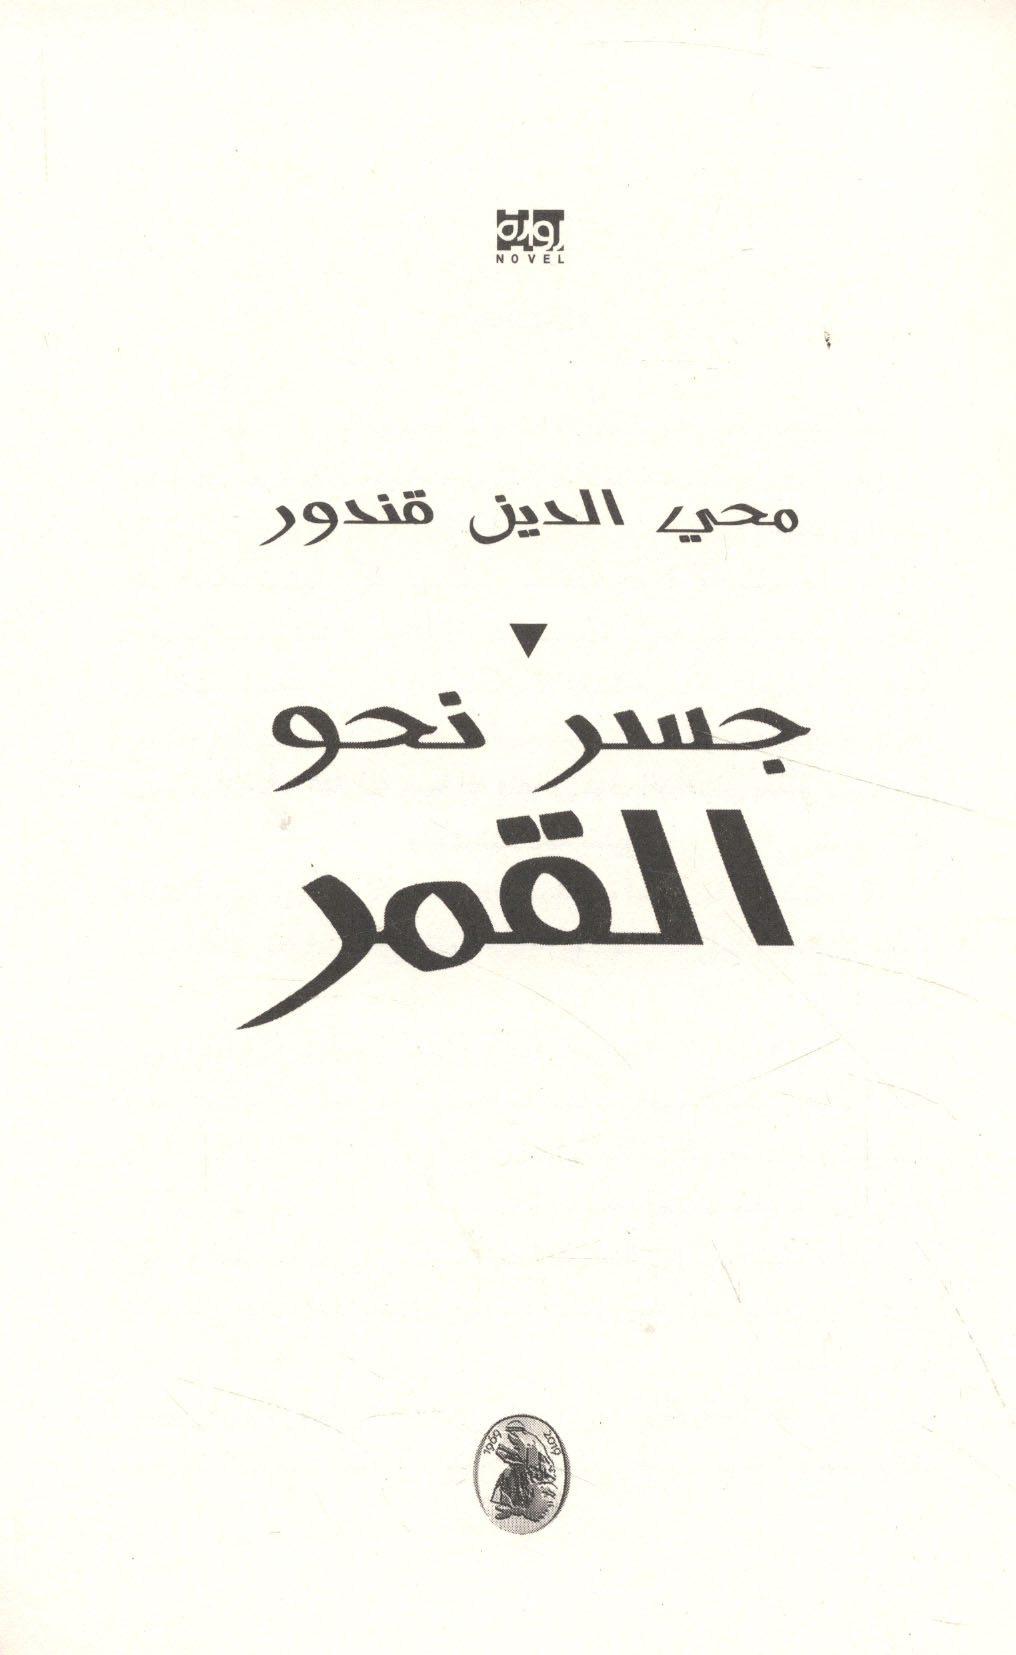 رواية
NOVEL
محي الدين قندور
جسر نحو
القمر
1969 2019